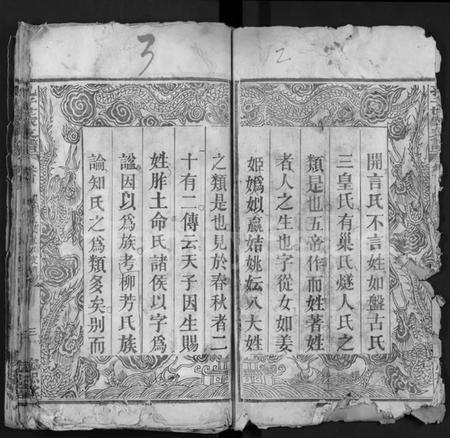 開言氏不言姓如盤古氏
三皇氏有巢氏燧人氏之
類是也五帝作而姓著姓
者人之生也字從女如姜
姬嬀姒嬴姞姚妘八大姓
之類是也見於春秋者二
十有二傳云天子因生賜
姓胙土命氏諸侯以字爲
諡因以爲族考柳芳氏族
論知氏之爲類多矣别而
3
2